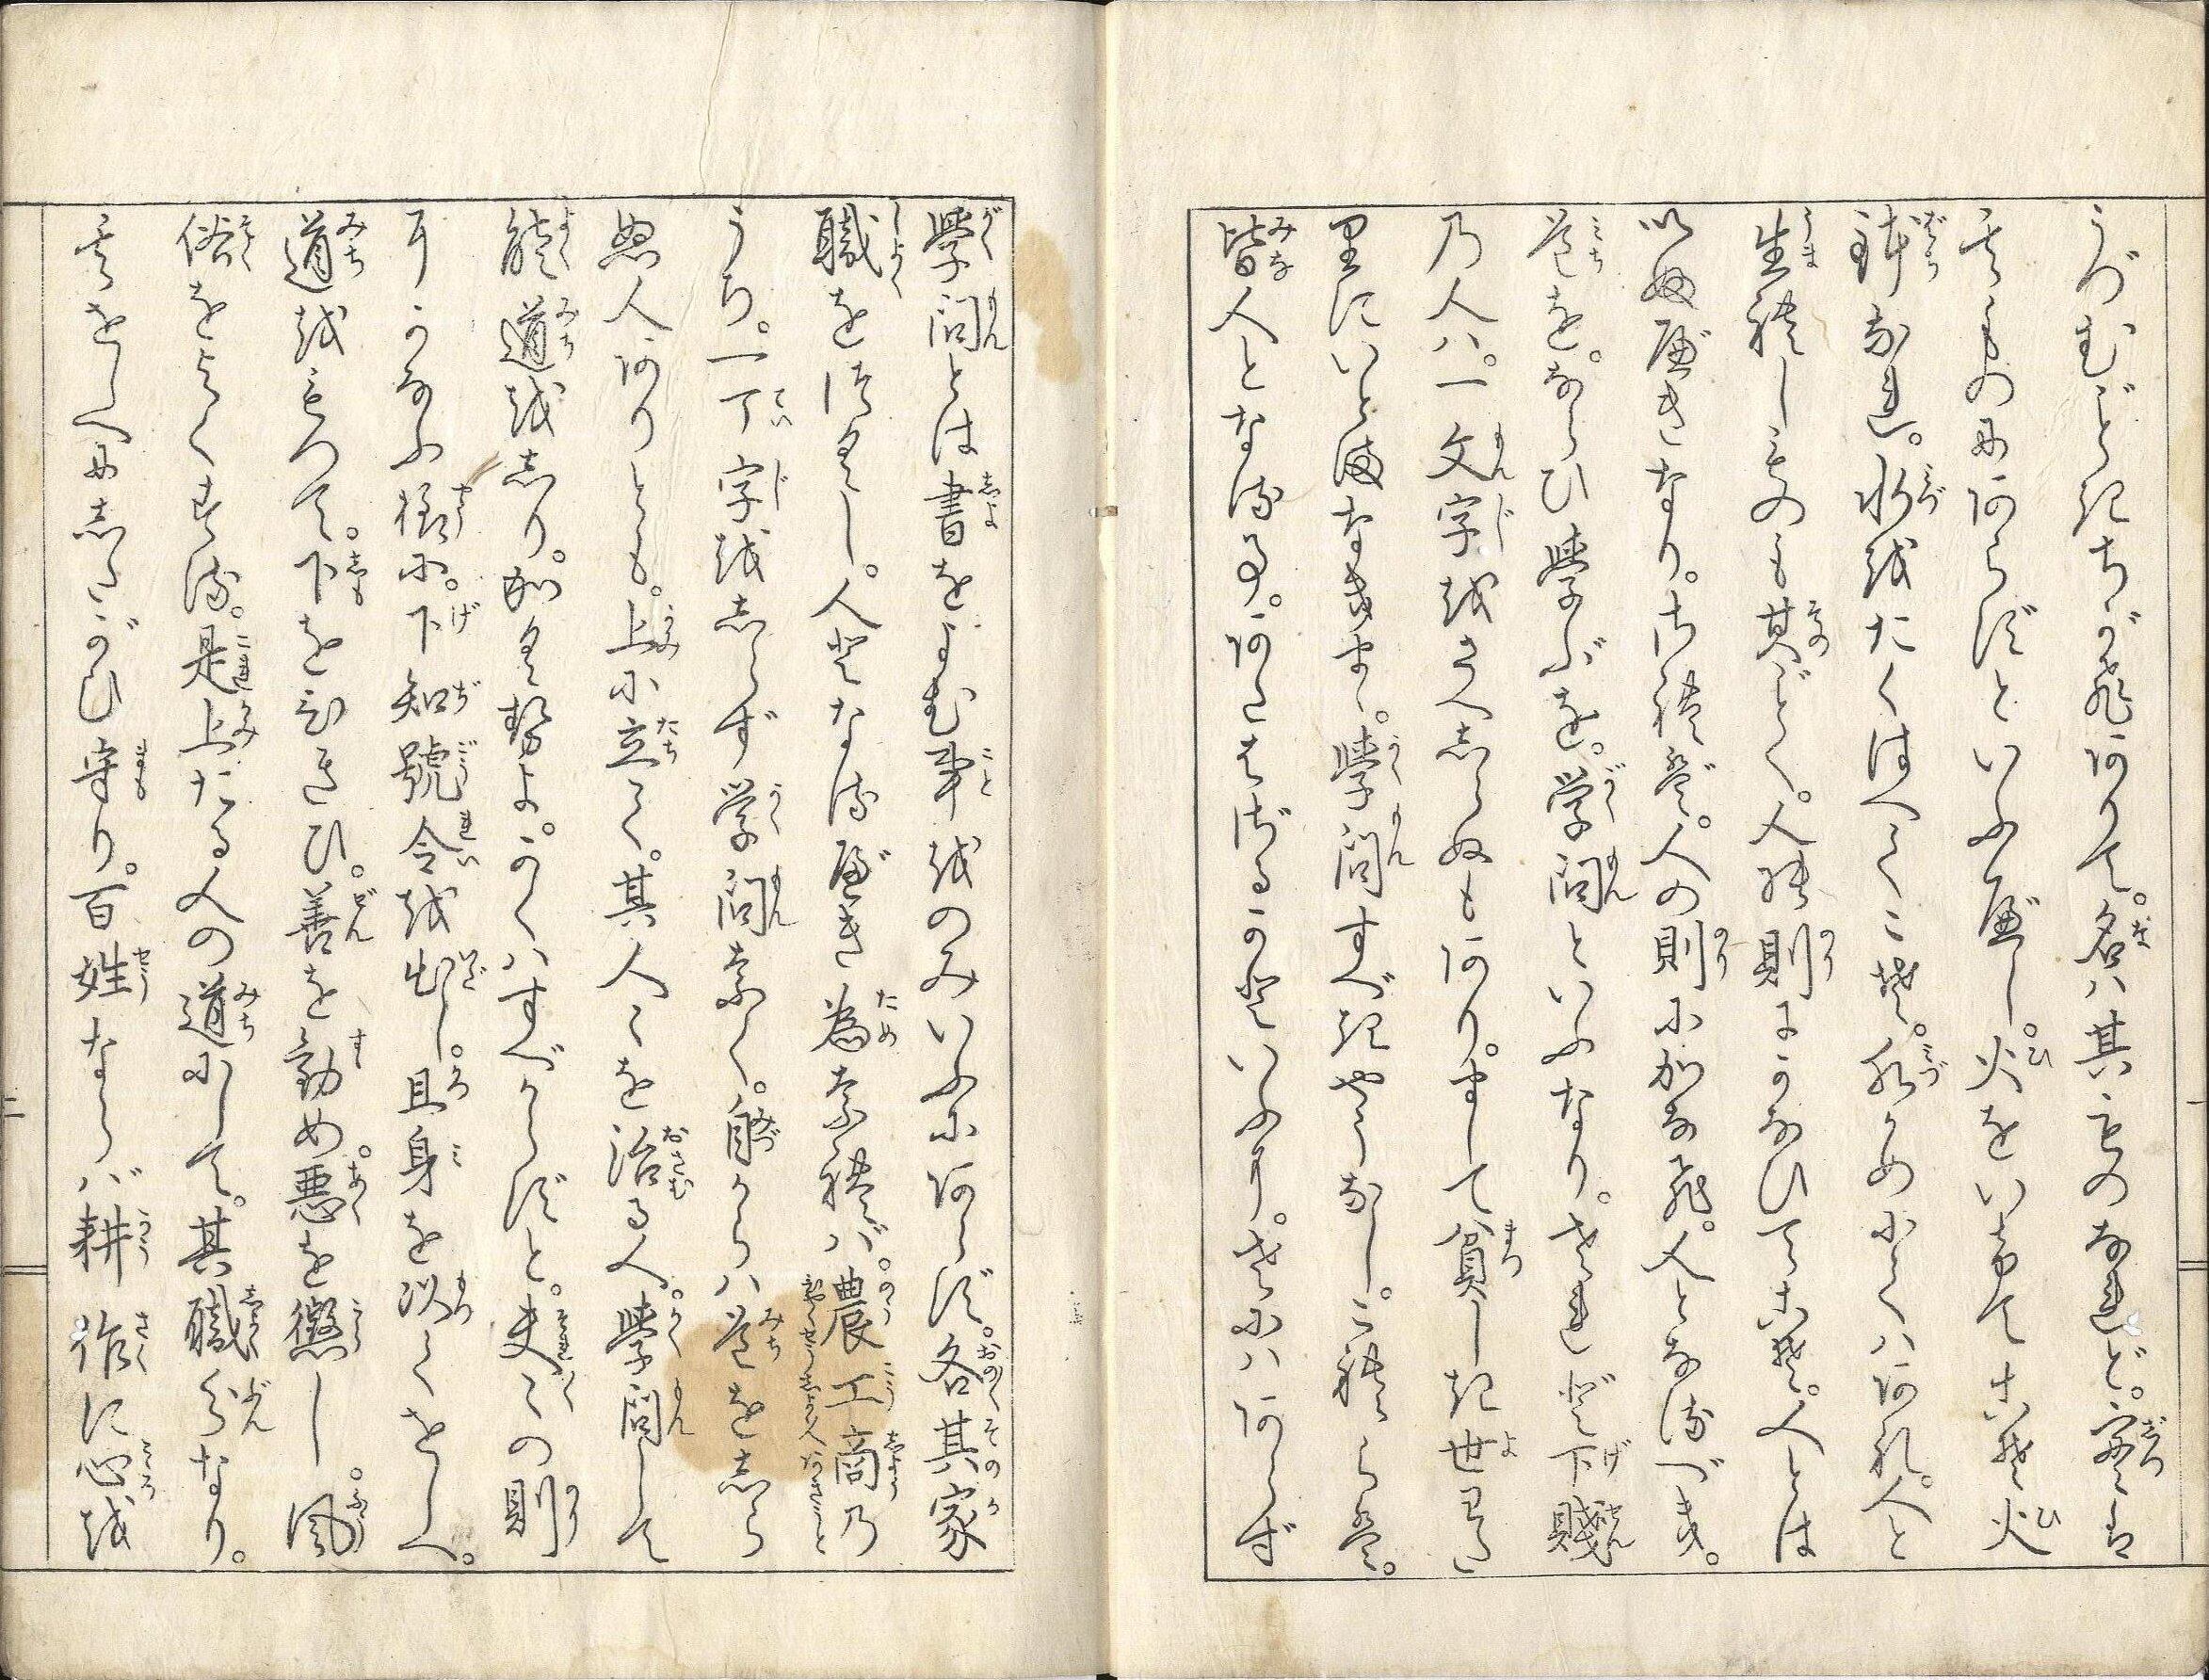 うづむごときちがひありて。名ハ其ものなれど。実は
其ものにあらずといふべし。火をいけてこそ火
鉢なれ。水をたくはへてこそ。水がめにてハあれ。人と
生れしものも其ごとく。人の則にかなひてこそ。人とは
いふべきなり。されば。人の則にかなひ。人となるべき。
道を。ならひ学ぶを。学問といふなり。されど下賤
乃人ハ。一文字をさへしらぬもあり。まして貧しき世わた
りにいとまなき身。学問すべきやうなし。これらは。
皆人となる事。あたはざるかといふに。さにハあらず
学問とは書をよむ事をのみいふにあらず。各其家
職をつとめ。人となるべき為なれば。農工商乃
うち。一丁字をしらず学問なく。自からハ道をしら
ぬ人ありとも。上に立て。其人々を治る人。学問して
能道をしり。かくせよ。かくハすべからずと。夫々の則
にかなふ様に。下知号令を出し。且身を以てをしへ。
道をもつて。下をひきひ。善を勧め。悪を懲し。風
俗をよくする。是上たる人の道にして。其職分なり。
其をしへにしたがひ守り。百姓ならバ耕作に心を